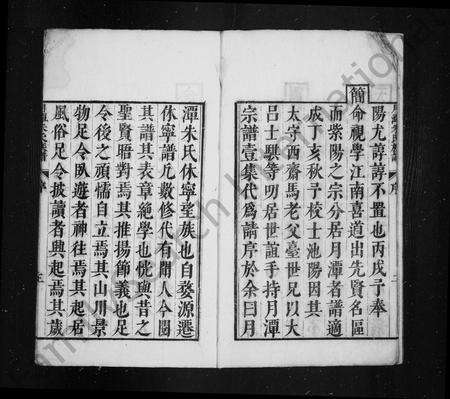 陽尤諄諄不置也丙戌予奉
簡
命視學江南喜道出先賢名區
而紫陽之宗分居月潭者譜適
成丁亥秋予校士池陽因其
太守西齋馬老父臺世兄以大
呂士騏等明居世誼手持月潭
宗譜壹集代為請序於余曰月
潭朱氏休寧望族也自婺源遷
休寧譜凡數修代有聞人今閱
其譜其表章絕學也恍與昔之
聖賢晤對焉其推揚節義也足
令後之頑懦自立焉其山川景
物足令臥遊者神往焉其起居
風俗足令披讀者興起焉其歲
序
序